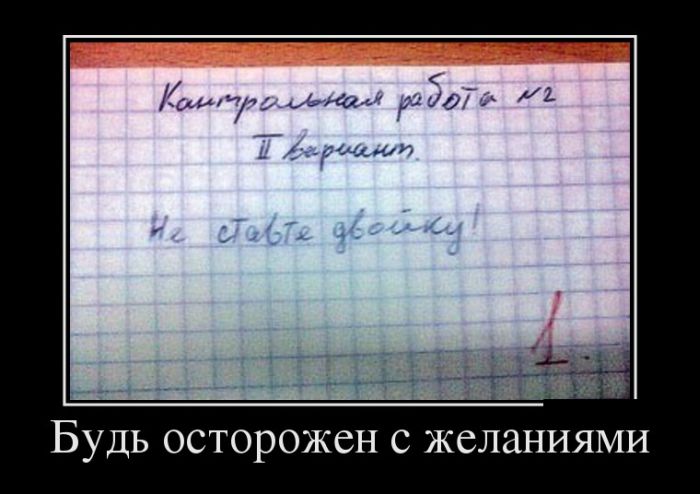 Контрольная работа №2
II Вариант.
Не ставте двойку!
1.
Будь осторожен с желаниями